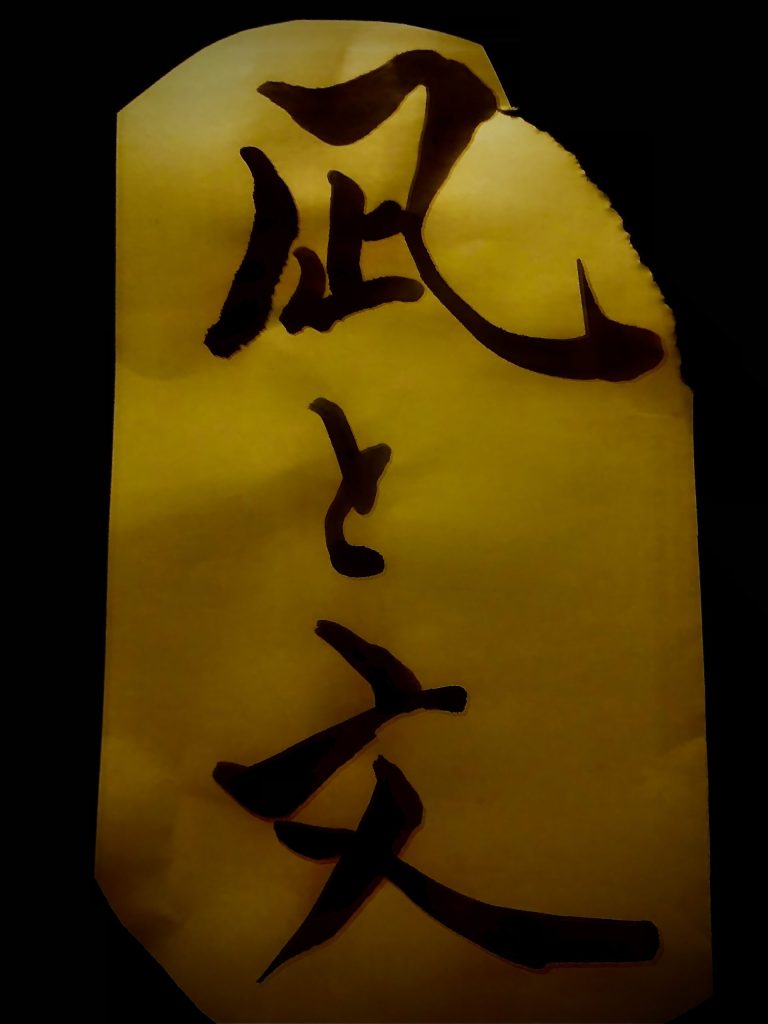 凪と文